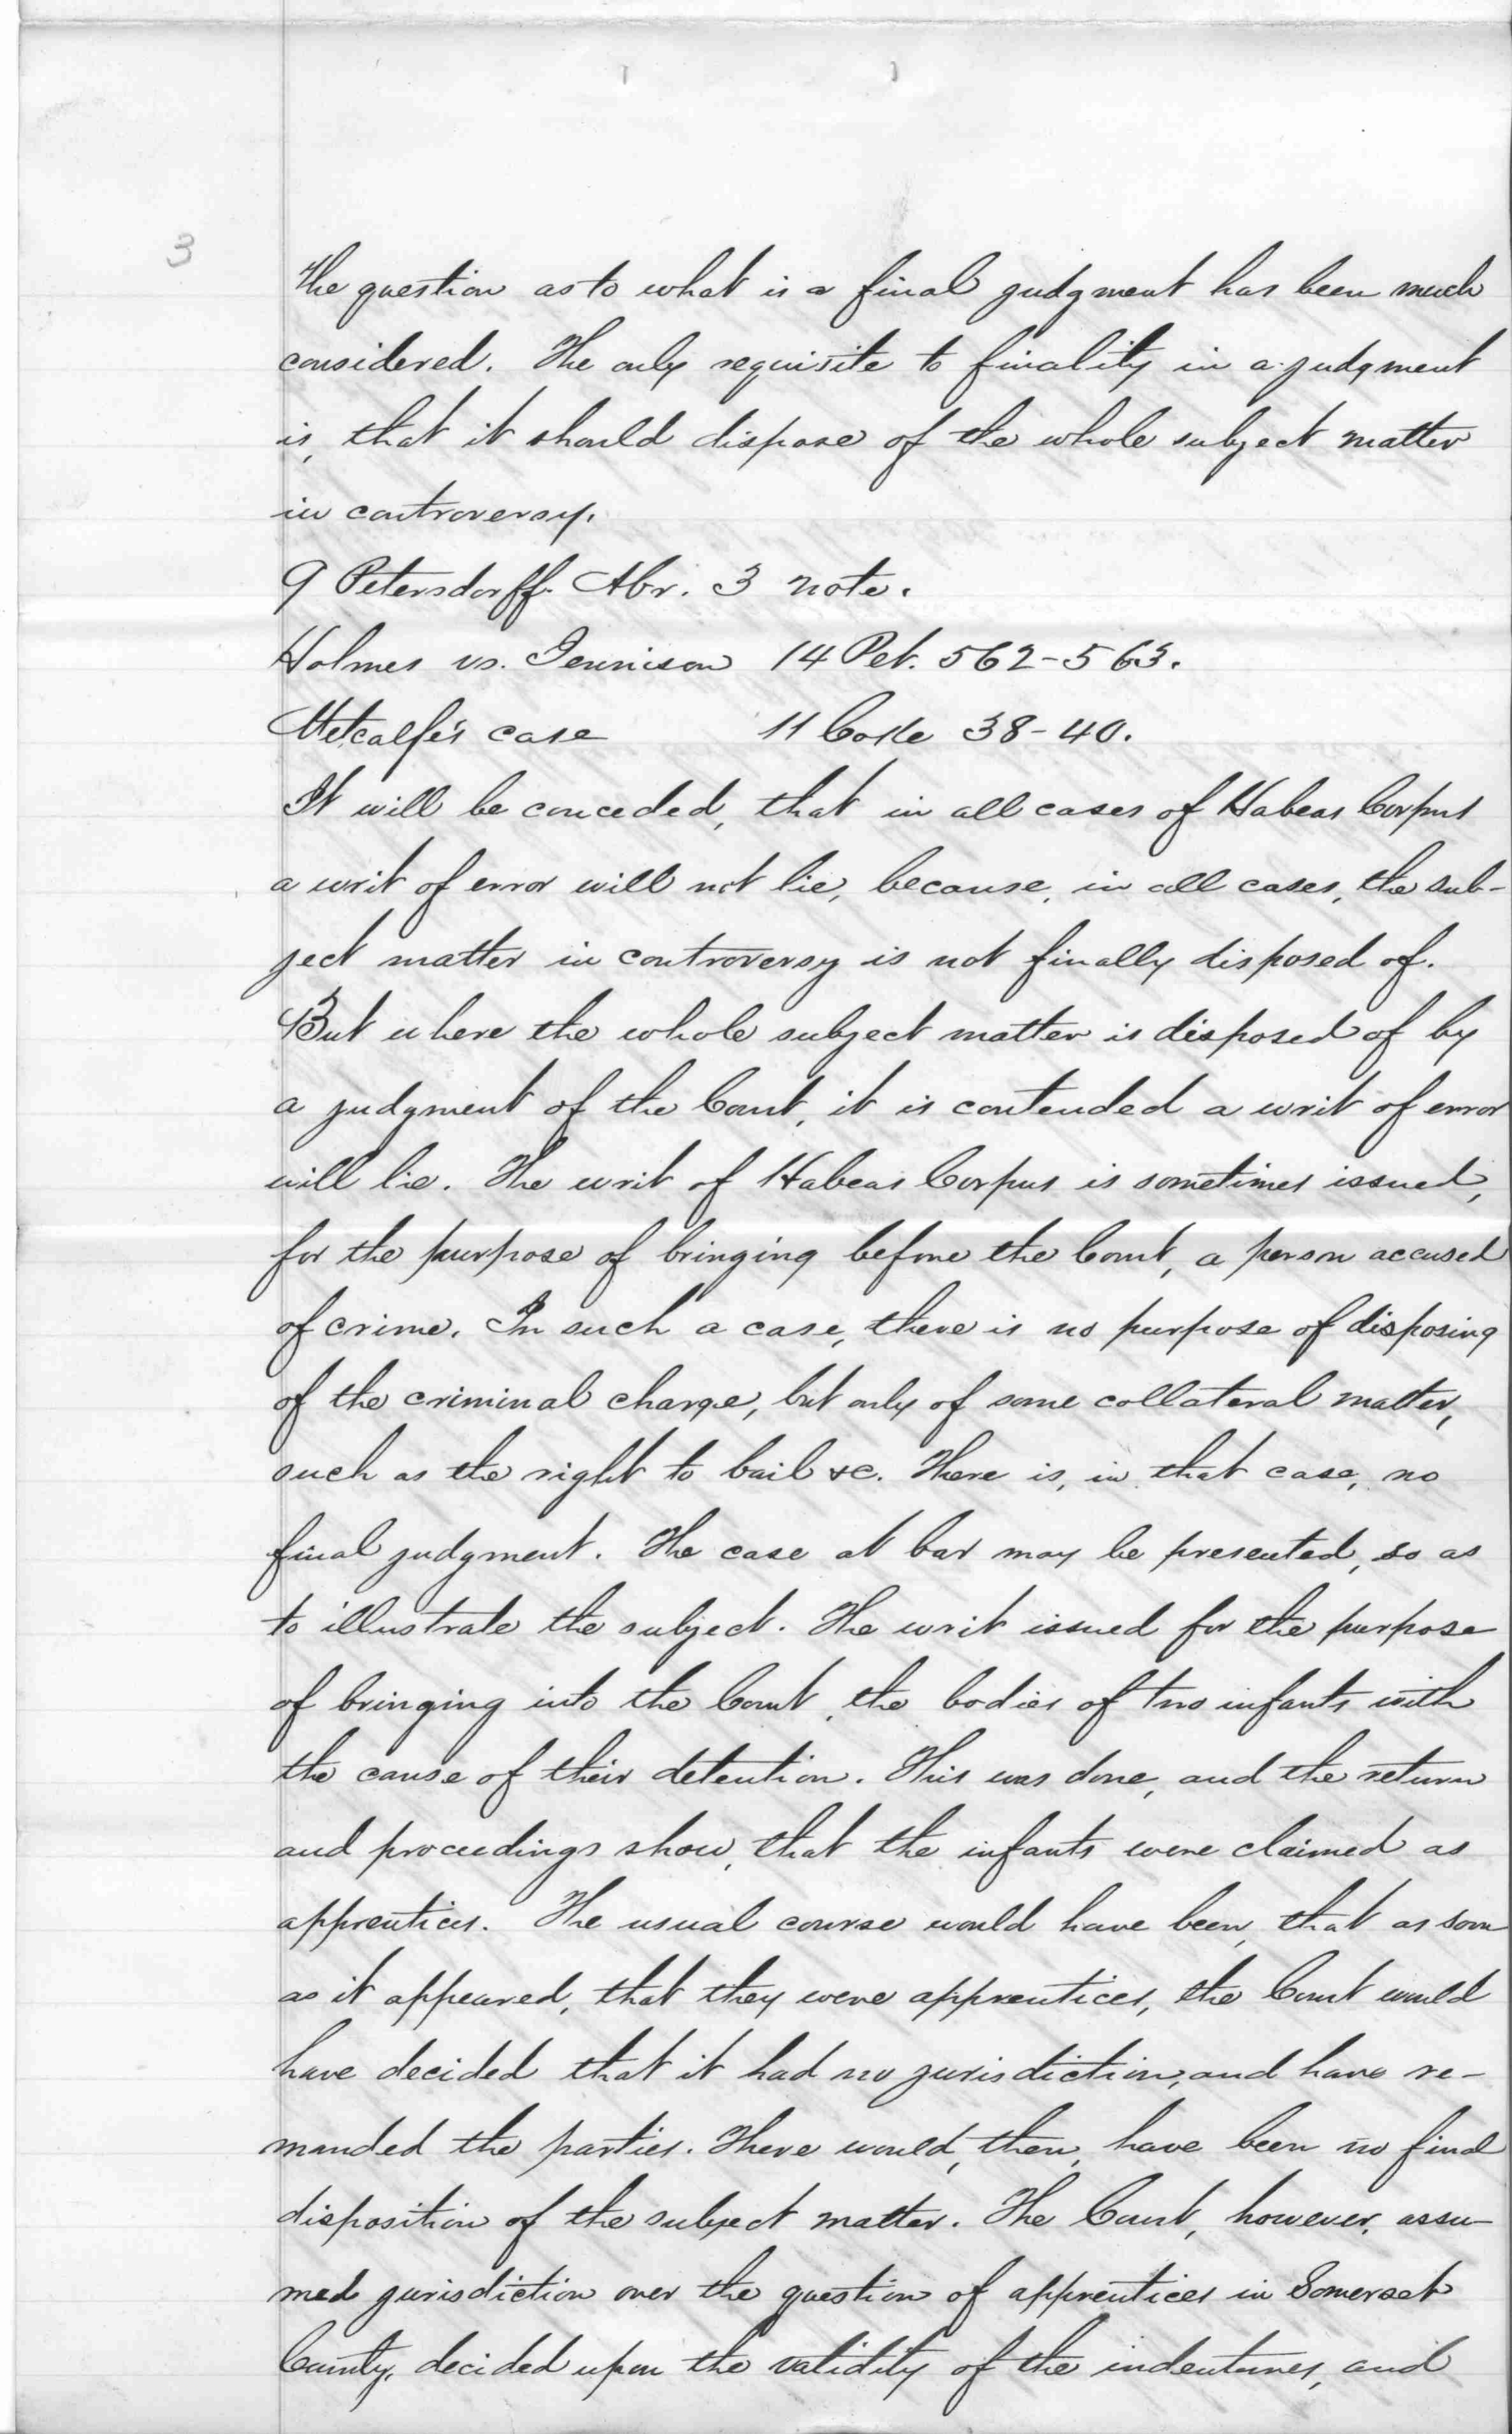 3
The question as to what is a final judgment has been much
considered. The only requisite to finality in a judgment
is, that it should dispose of the whole subject matter
in controversy.
9 Petersdorff. Abr. 3 note.
Holmes vs. Jennison 14 Pet. 562-563.
Metcalfe's case 11 Coke 38-40.
It will be conceded, that in all cases of Habeas Corpus
a writ of error will not lie, because, in all cases, the sub-
ject matter in controversy is not finally disposed of.
But where the whole subject matter is disposed of by
a judgment of the Court, it is contended a writ of error
will lie. The writ of Habeas Corpus is sometimes issued,
for the purpose of bringing before the Court, a person accused
of crime. In such a case, there is no purpose of disposing
of the criminal charge, but only of some collateral matter,
such as the right to bail &c. There is, in that case, no
final judgment. The case at bar may be presented, so as
to illustrate the subject. The writ issued for the purpose
of bringing into the Court, the bodies of two infants with
the cause of their detention. This was done, and the return
and proceedings show, that the infants were claimed as
apprentices. The usual course would have been, that as soon
as it appeared, that they were apprentices, the Court would
have decided that it had no jurisdiction, and have re-
manded the parties. There would, then, have been no final
disposition of the subject matter. The Court, however, assu-
med jurisdiction over the question of apprentices in Somerset
County, decided upon the validity of the indentures, and